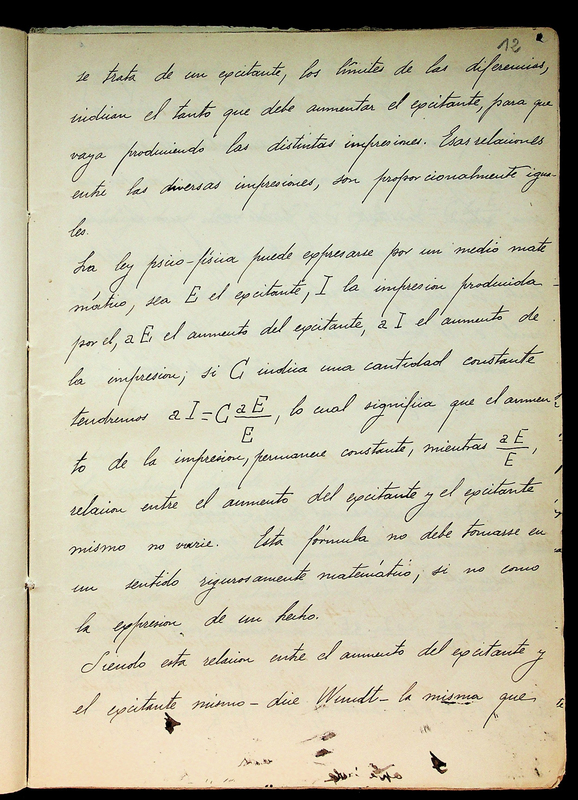 12
se trata de un excitante, los límites de las diferencias,
indican el tanto que debe aumentar el excitante, para que
vaya produciendo las distintas impresiones. Esas relaciones
entre las diversas impresiones, son proporcionalmente igua-
les.
La ley psico-física puede expresarse por un medio mate
mático, sea E el excitante, I la impresion producida
por el, aE el aumento del excitante, aI el aumento de
la impresion; si C indica una cantidad constante
tendremos aI=C aE/E, lo cual significa que el aumen
to de la impresion, permanece constante, mientras aE/E,
relacion entre el aumento del excitante y el excitante
mismo no varie. Esta fórmula no debe tomarse en
un sentido rigurosamente matemático, si no como
la expresion de un hecho.
Siendo esta relacion entre el aumento del excitante y
el excitante mismo - dice Wundt - la misma que